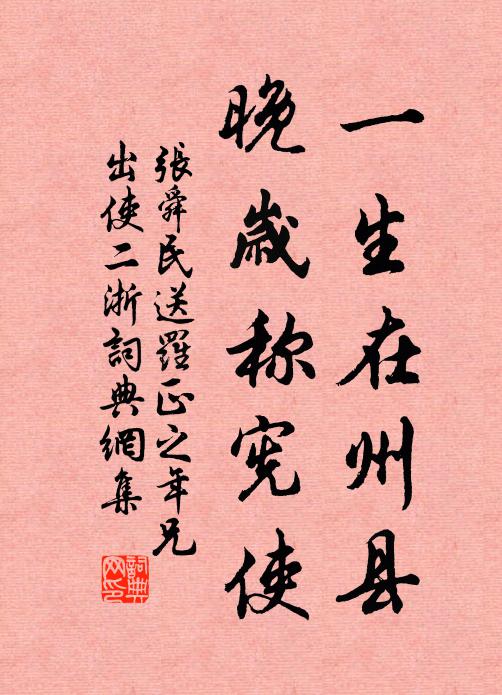 一生在州县
晚歳称宪使
張舜民送羅正之年兄
出使二浙詞典網集
詞典网印